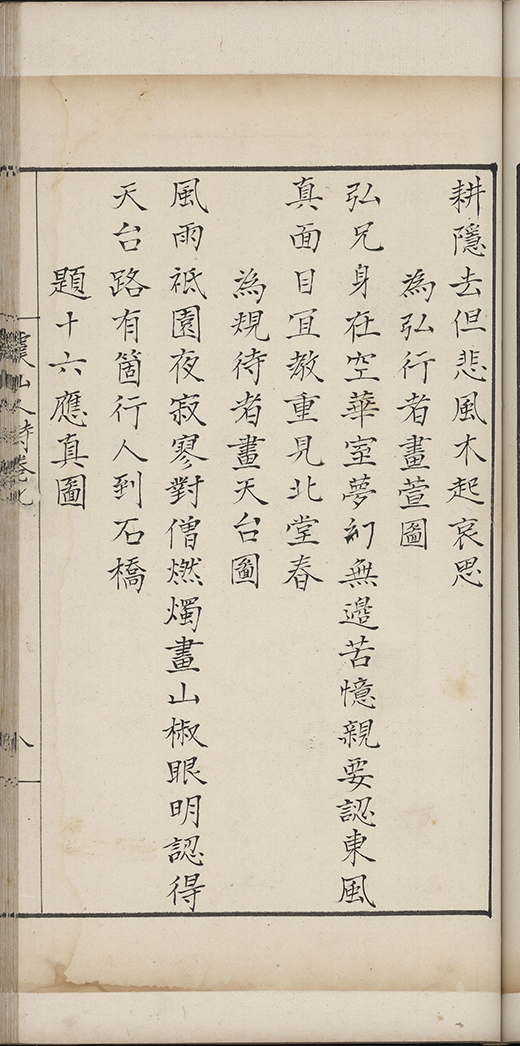 耕隱去但悲風木起哀思
為弘行者畫萱圖
弘兄身在空華室夢幻無邊苦憶親要認東風
真面目冝教重見北堂春
為規待者畫天台圖
風雨祗園夜寂寥對僧燃燭畫山椒眼明認得
天台路有箇行人到石橋
題十六應真圖
人詩卷
八